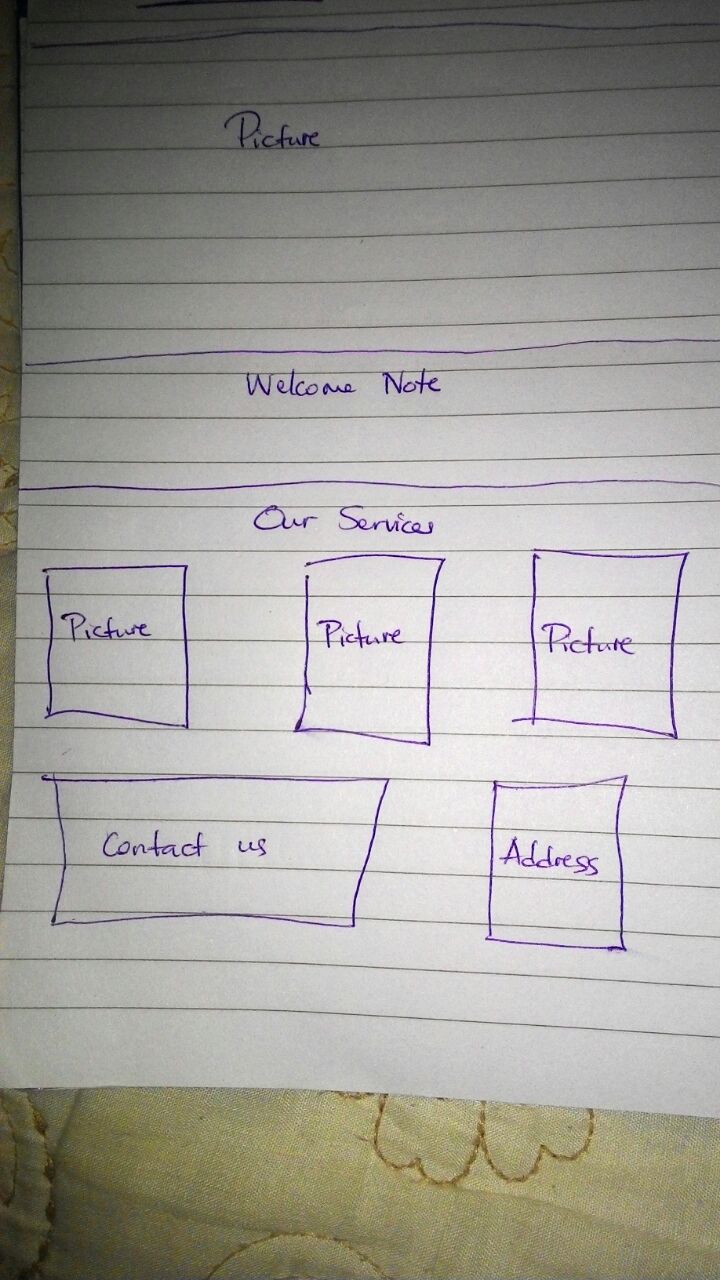 Picture
Welcome Note
Our Services
Picture Picture Picture
Contact us Address